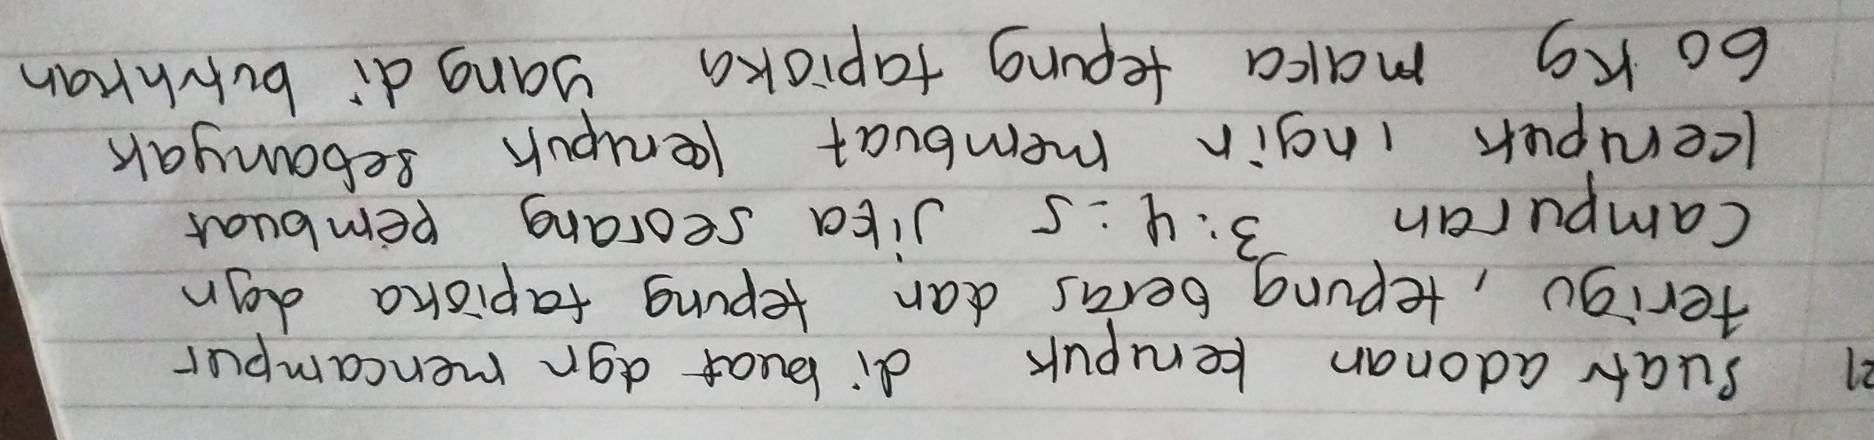 21 Suatu adonan kerupuk di buat dgn mencampur
terigu, tepung beras dan tepung tapioka dgn
campuran 3:4:5 Jika seorang pembuat
kerupuk ingin membuat kerupuk sebanyak
60 Kg maka tepung tapioka yang di butuhkan